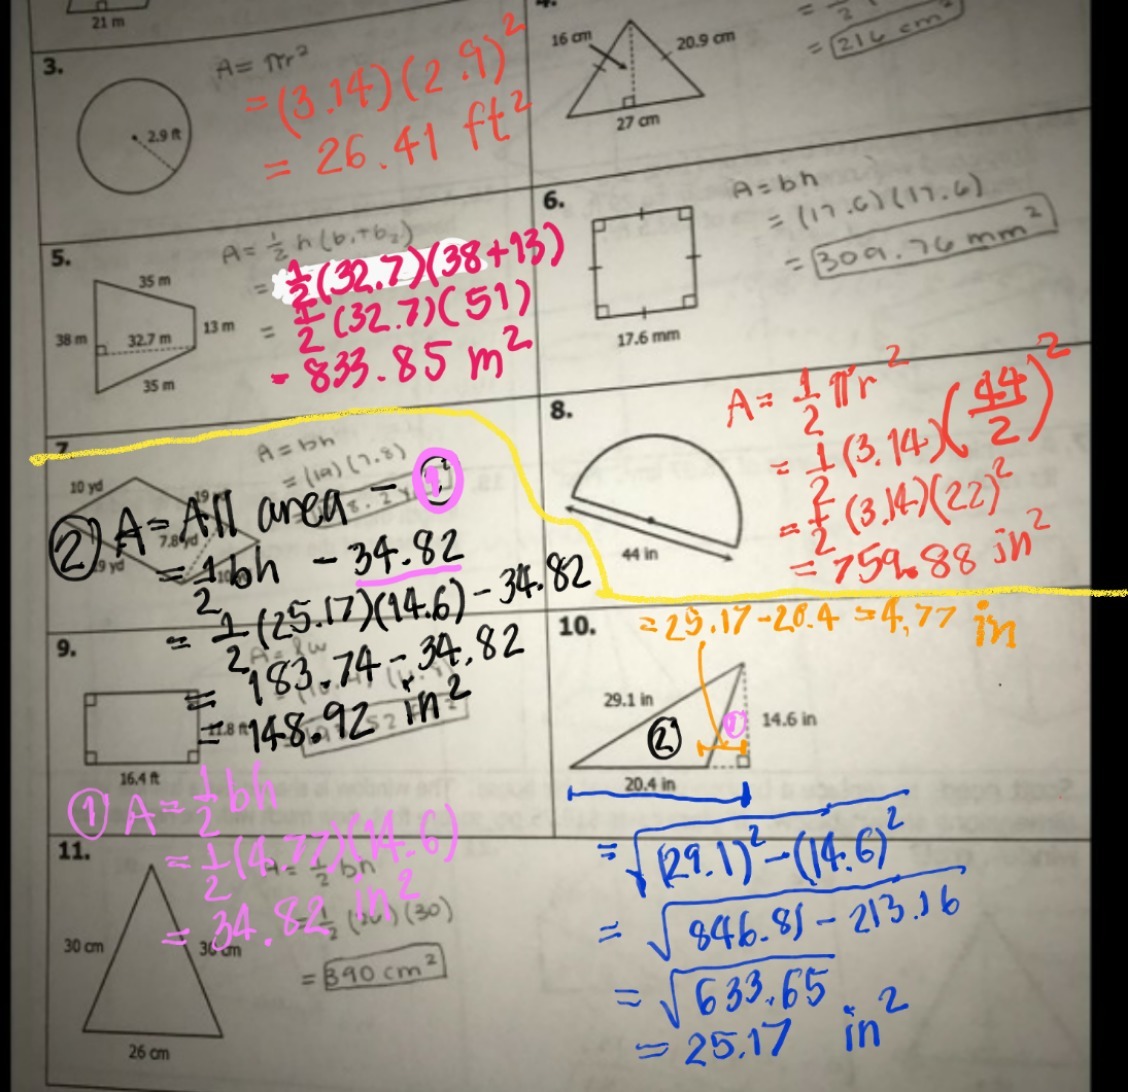 21 m
4.
= (216 cm²
3.
A = πr²
= (3.14)(2.9)²
= 26.41 ft²
2.9 ft
16 cm
20.9 cm
27 cm
5.
A = 1/2 h(b₁+b₂)
= 1/2(32.7)(38+13)
= 1/2(32.7)(51)
- 833.85 m²
35 m
38 m
32.7 m
13 m
35 m
6.
A = bh
= (17.6)(17.6)
= 309.76 mm²
17.6 mm
7.
A = bh
= (19)(7.8)
10 yd
19
7.8 yd
19 yd
② A = All area - ①
= 1/2 bh - 34.82
= 1/2 (25.17)(14.6) - 34.82
= 183.74 - 34.82
= 148.92 in²
8.
A = 1/2 πr²
= 1/2 (3.14)(44/2)²
= 1/2 (3.14)(22)²
= 759.88 in²
44 in
9.
A = lw
11.8 ft
16.4 ft
① A = 1/2 bh
= 1/2 (4.77)(14.6)
= 34.82 in²
10.
= 25.17 - 20.4 = 4.77 in
29.1 in
②
①
14.6 in
20.4 in
= √(29.1)² - (14.6)²
= √846.81 - 213.16
= √633.65
= 25.17 in²
11.
A = 1/2 bh
= 1/2 (26)(30)
= 390 cm²
30 cm
30 cm
26 cm